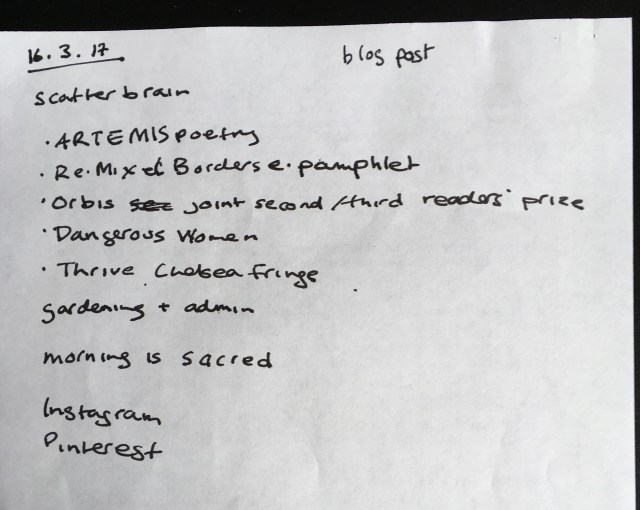 16.3.17
blog post
scatterbrain
· ARTEMISpoetry
· Re-Mixed Borders e-pamphlet
· Orbis sec joint second/third readers' prize
· Dangerous Women
· Thrive Chelsea Fringe
gardening + admin
morning is sacred
Instagram
Pinterest